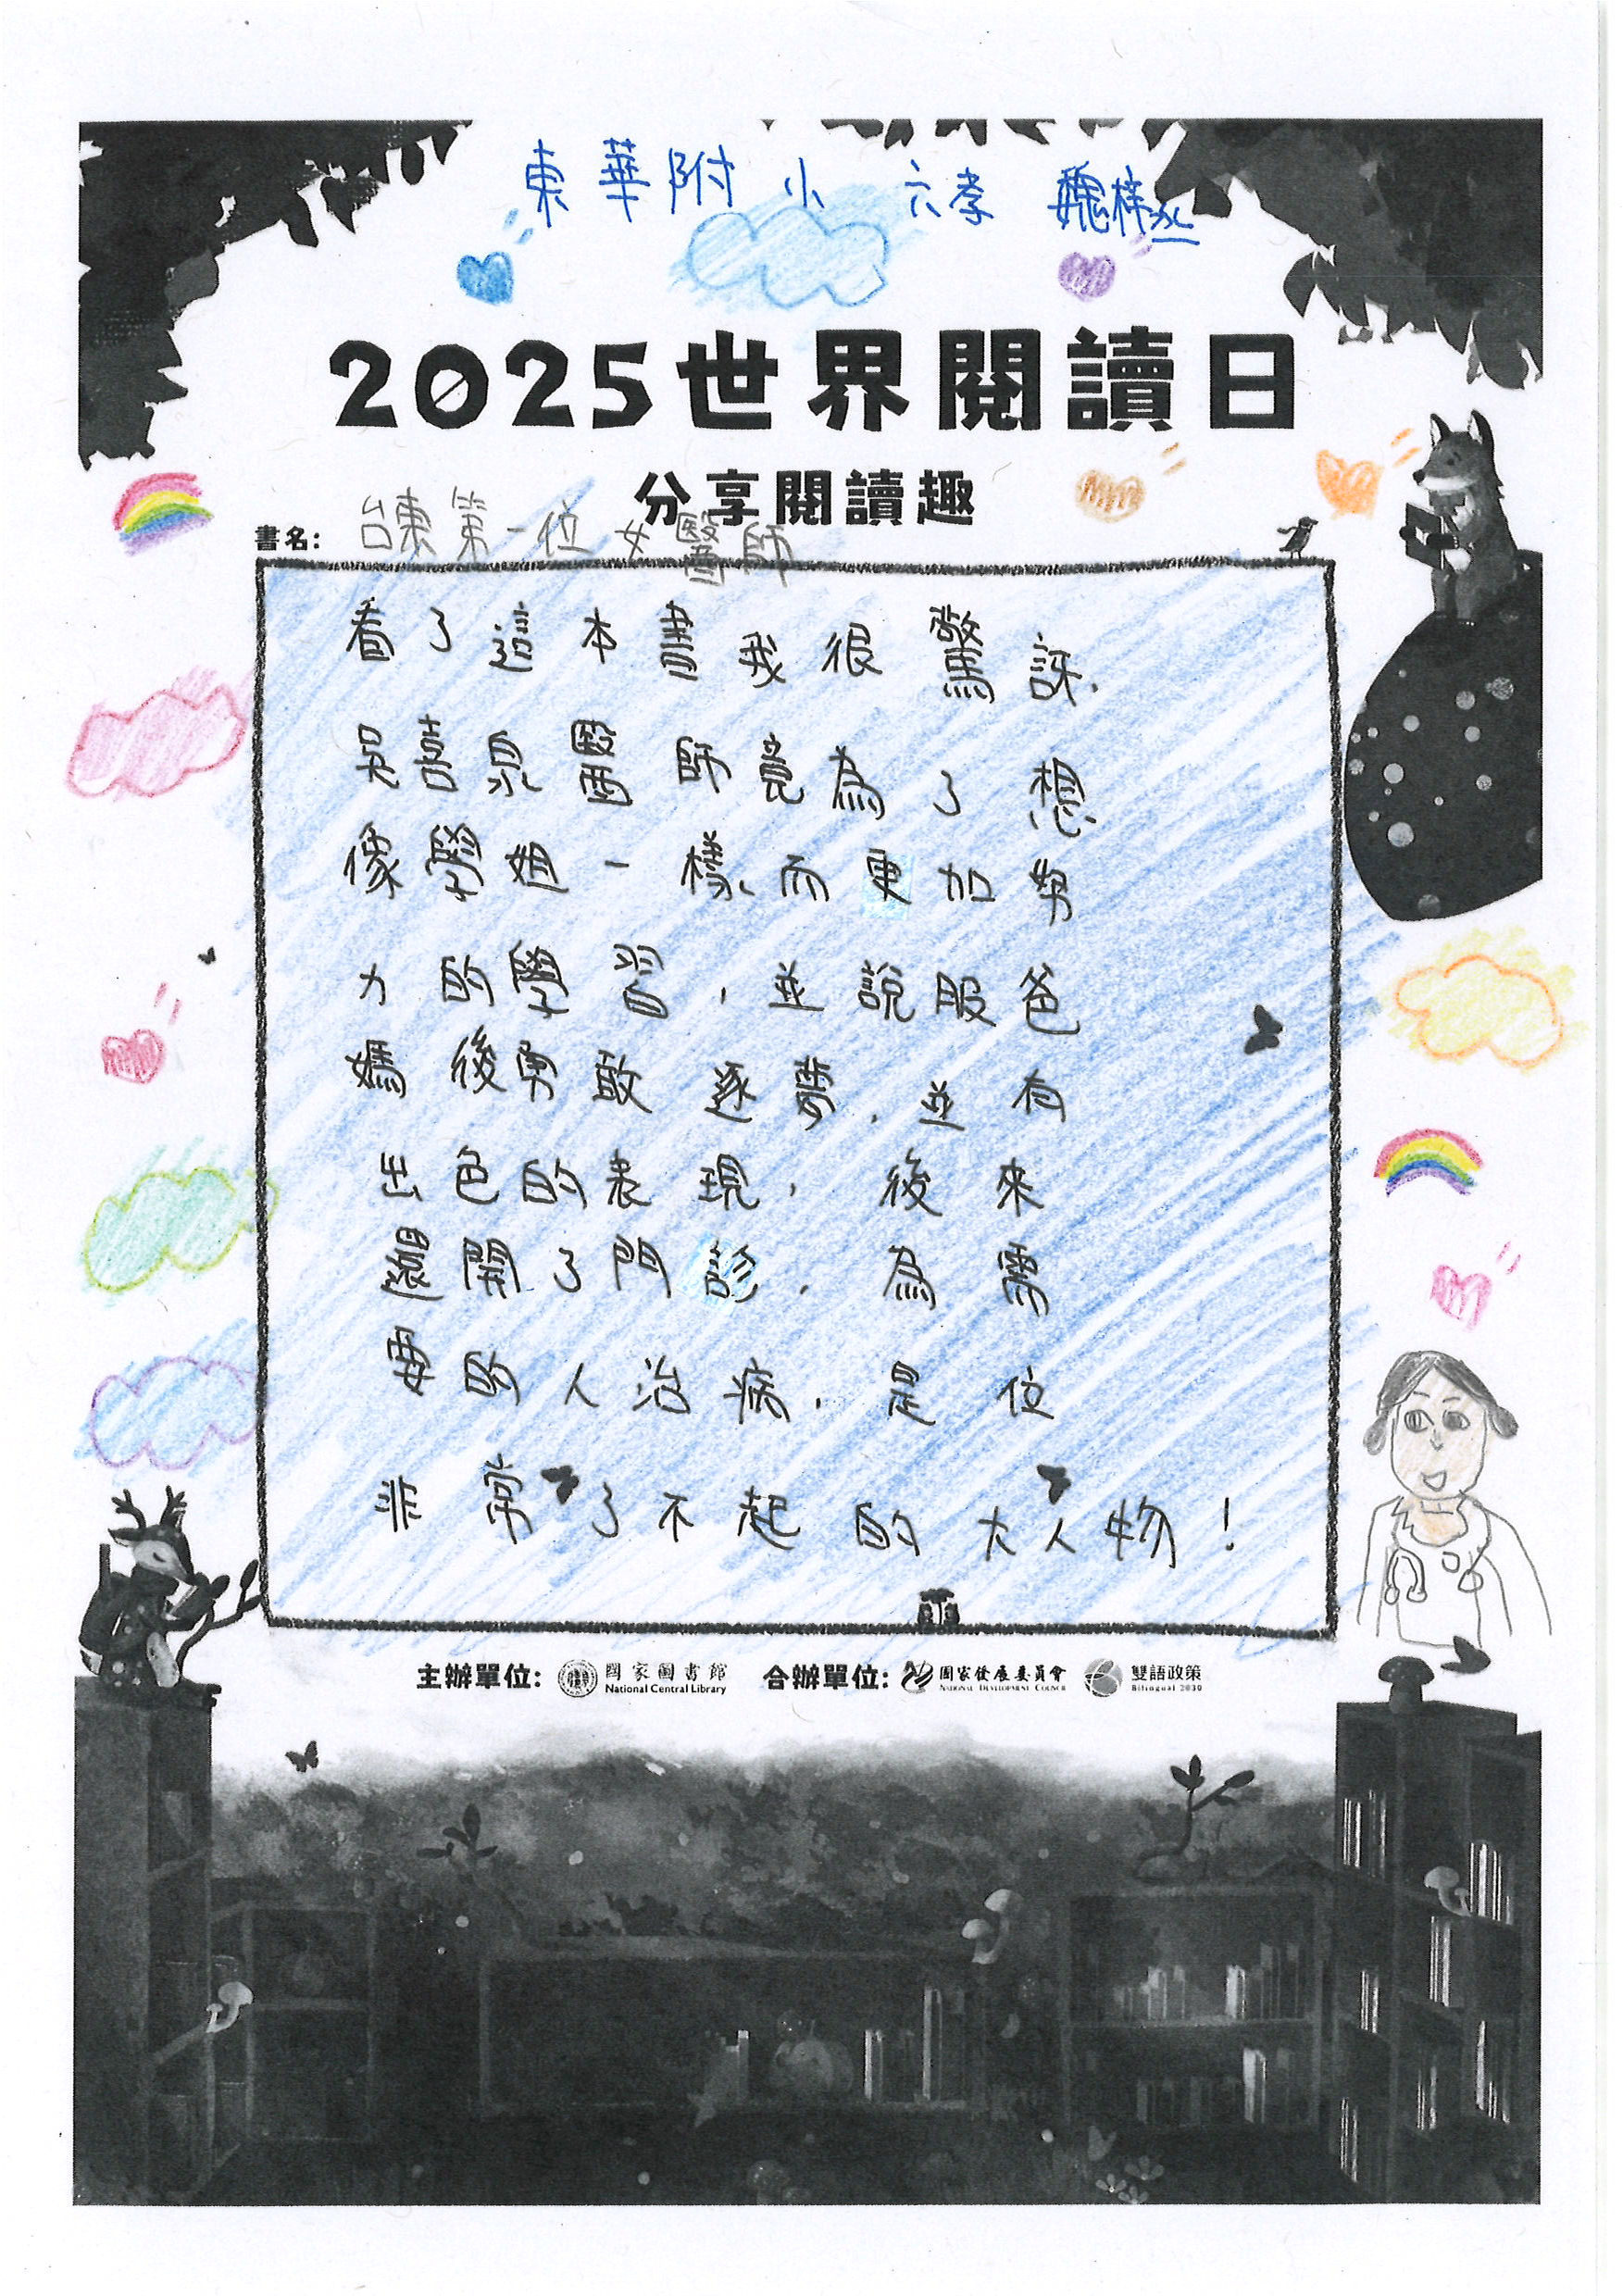 東華附小 六孝 魏梓丞
2025世界閱讀日
分享閱讀趣
書名: 台東第一位女醫師
看了這本書我很驚訝,
吳喜泉醫師竟為了想
像學姐一樣,而更加努
力的學習,並說服爸
媽後勇敢逐夢,並有
出色的表現,後來
還開了門診,為需
要的人治病,是位
非常了不起的大人物!
主辦單位: 國家圖書館 National Central Library 合辦單位: 國家發展委員會 NATIONAL DEVELOPMENT COUNCIL 雙語政策 Bilingual 2030